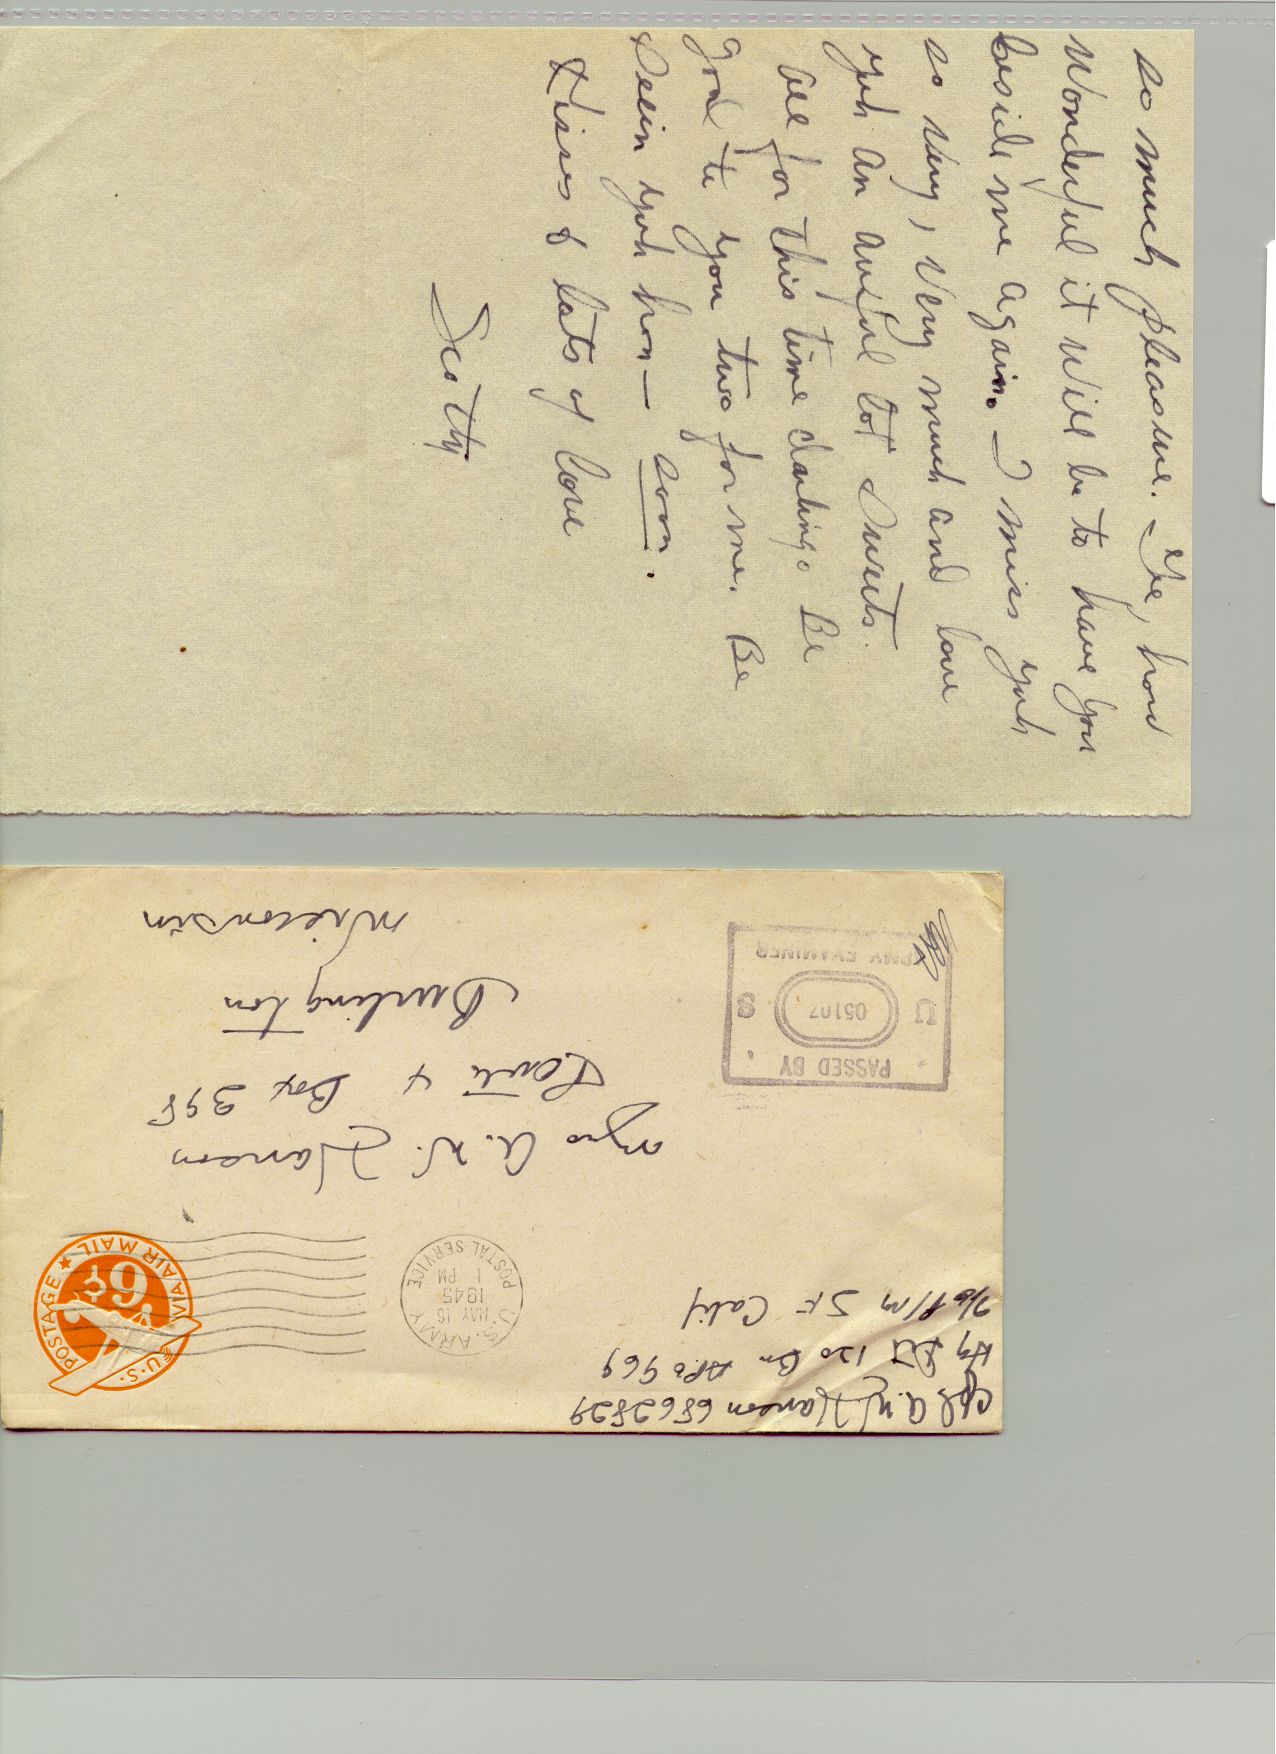 so much pleasure. Gee, how
wonderful it will be to have you
beside me again. I miss yuh
so very, very much and love
yuh an awful lot Sweets.
All for this time darling. Be
good to you two for me. Be
Seein yuh hon — soon.
Kisses & lots of love
Scotty
Cpl A.W. Hanson 68628
Hq Det 120 Bn APO 969
c/o P/M S.F. Calif
U.S. ARMY
MAY 16
1945
1 PM
POSTAL SERVICE
U.S. POSTAGE
VIA AIR MAIL
6¢
Mrs A.W. Hanson
Route 4 Box 398
Burlington
Wisconsin
PASSED BY
U 05107 S
ARMY EXAMINER